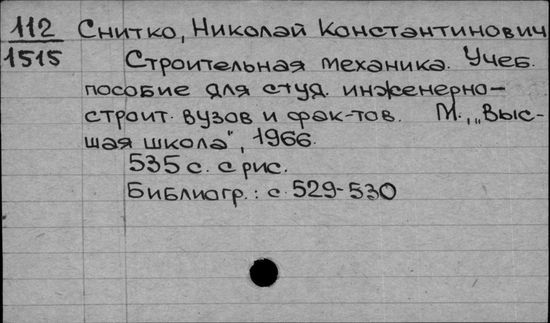 112 Снитко, Николай Константинович
1515 Строительная механика. Учеб.
пособие для студ. инженерно-
строит. вузов и фак-тов. М., „Выс-
шая школа", 1966.
535 с. с рис.
Библиогр.: с. 529-530